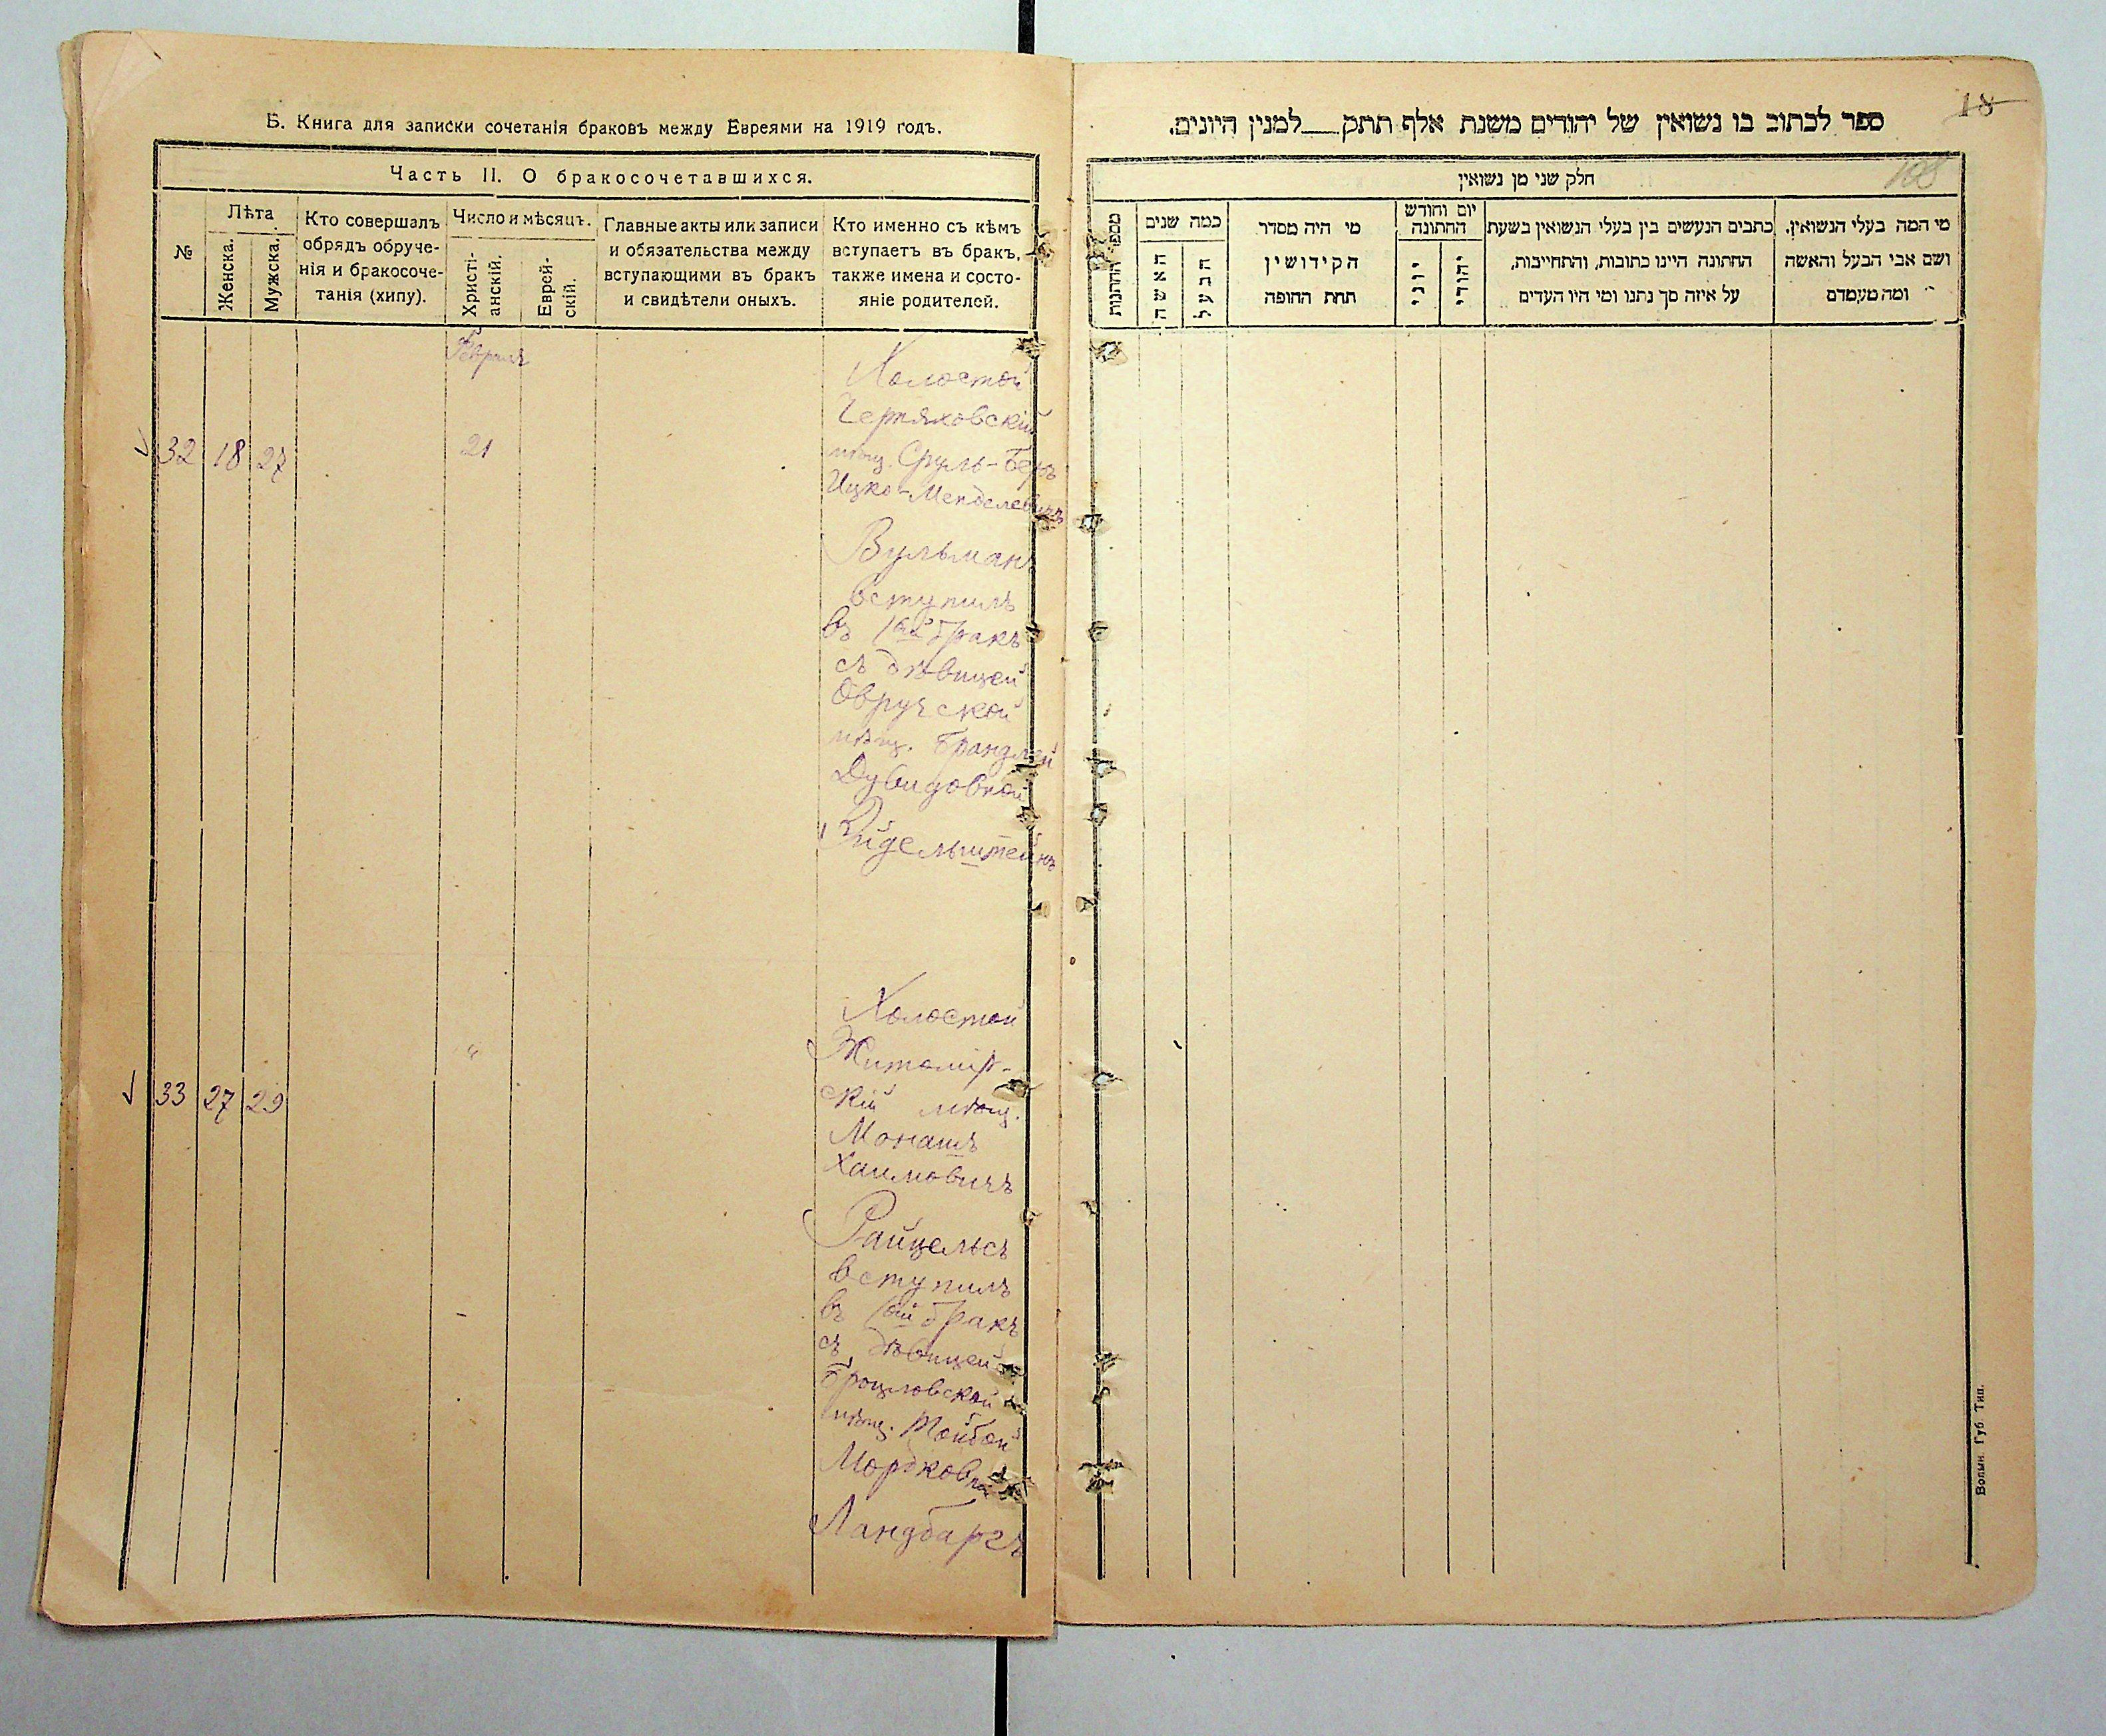 Б. Книга для записки сочетанія браковъ между Евреями на 1919 годъ.
Часть II. О бракосочетавшихся.
№
Лѣта
Женска.
Мужска.
Кто совершалъ
обрядъ обруче-
нія и бракосоче-
танія (хипу).
Число и мѣсяцъ.
Христі-
анскій.
Еврей-
скій.
Главные акты или записи
и обязательства между
вступающими въ бракъ
и свидѣтели оныхъ.
Кто именно съ кѣмъ
вступаетъ въ бракъ,
также имена и состо-
яніе родителей.
Февраля
32 18 27 21
Холостой
Черняховскій
мѣщ. Сруль-Беръ
Ицко-Менделевичъ
Вульманъ
вступилъ
въ 1ый бракъ
съ дѣвицей
Овручской
мѣщ. Брандлей
Дувидовной
Эйдельштейнъ
33 27 29 "
Холостой
Житомір-
скій мѣщ.
Монашъ
Хаимовичъ
Райцельсъ
вступилъ
въ 1ый бракъ
съ дѣвицей
мѣщ. Тойбой
Мордковной
Ландбергъ
18
108
ספר לכתוב בו נשואין של יהודים משנת אלף תתק___למנין היונים.
חלק שני מן נשואין
מספר החתנות
כמה שנים
האשה
הבעל
מי היה מסדר
הקידושין
תחת החופה
יום וחודש
החתונה
יוני
יהודי
כתבים הנעשים בין בעלי הנשואין בשעת
החתונה היינו כתובות, והתחייבות,
על איזה סך נתנו ומי היו העדים
מי המה בעלי הנשואין.
ושם אבי הבעל והאשה
ומה מעמדם
Волын. Губ. Тип.